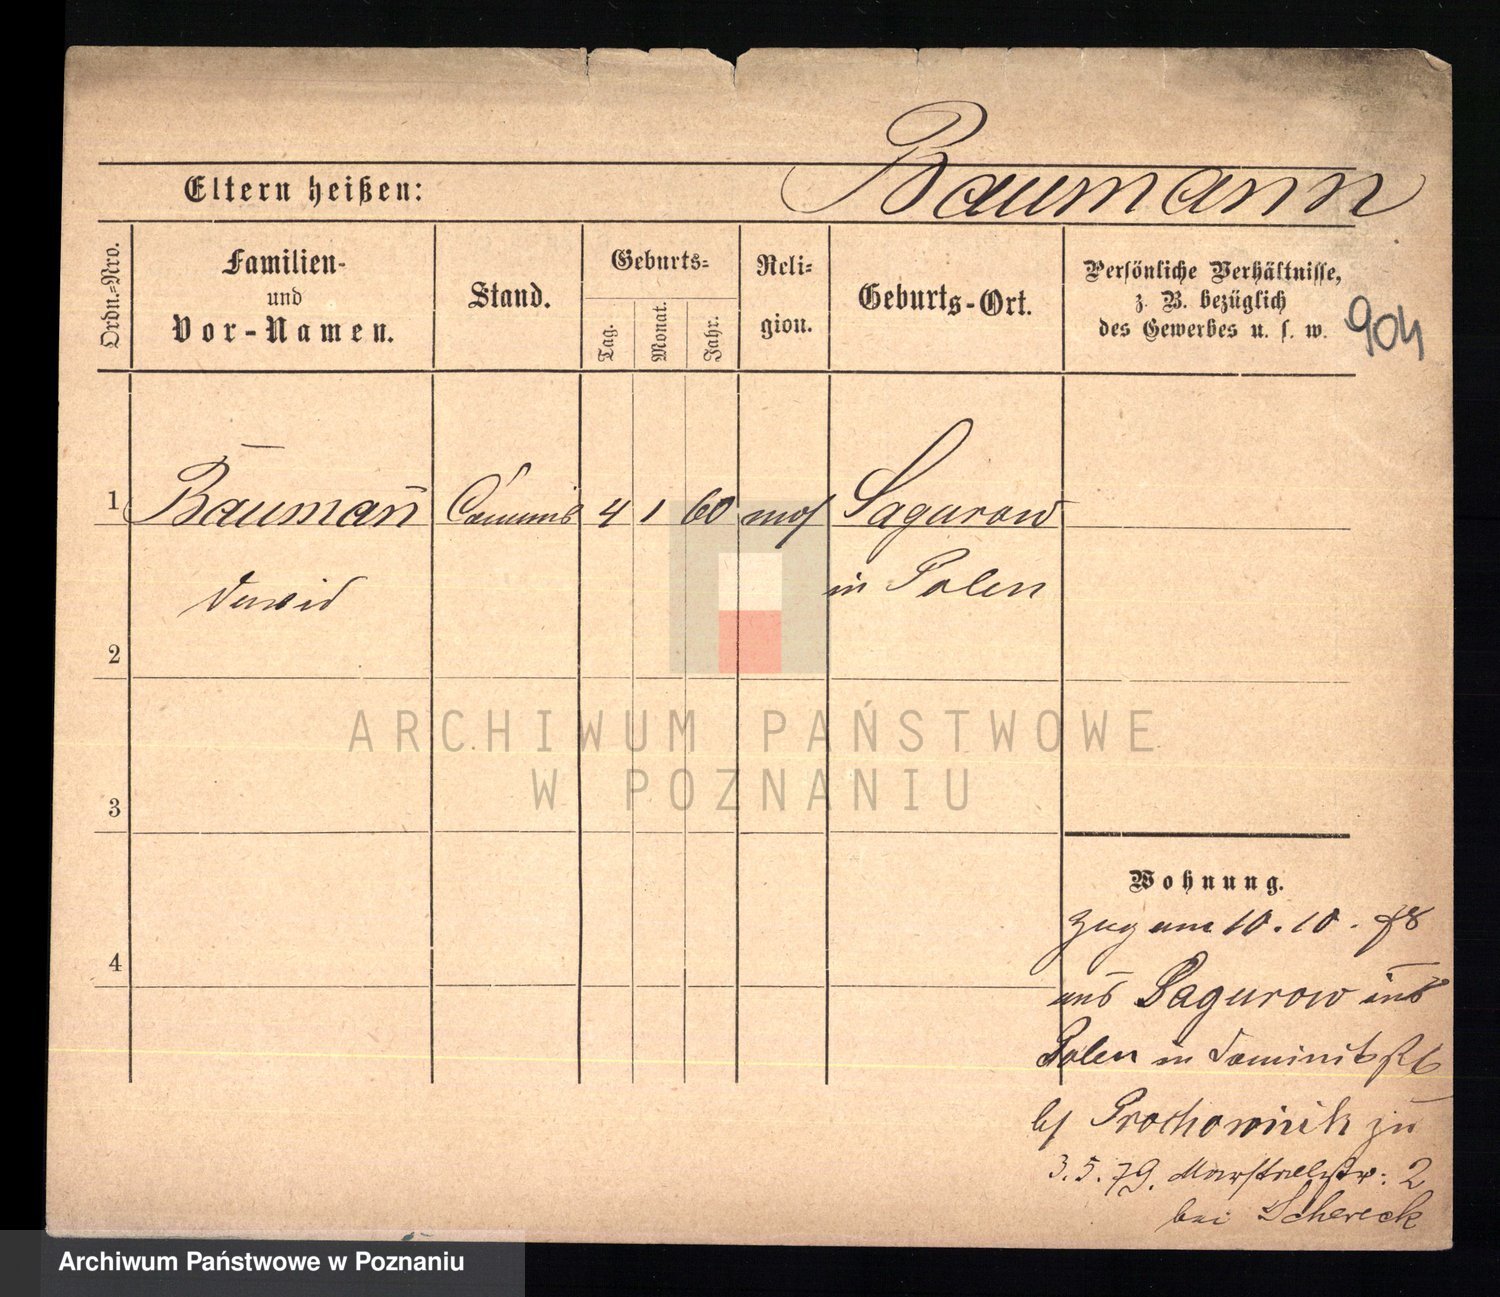 Baumann
Eltern heißen:
Ordn.=Nro.
Familien-
und
Vor-Namen.
Stand.
Geburts=
Tag.
Monat.
Jahr.
Reli=
gion.
Geburts-Ort.
Persönliche Verhältnisse,
z. B. bezüglich
des Gewerbes u. s. w.
904
1 Bauman̄ Commis 4 1 60 mos Sagurow
David in Polen
2
3
4
Wohnung.
Zug am 10.10.78
aus Sagurow in
Polen in
bei Prochownik zu
3.5.79. Marstallstr: 2
bei Schereck
ARCHIWUM PAŃSTWOWE
W POZNANIU
Archiwum Państwowe w Poznaniu